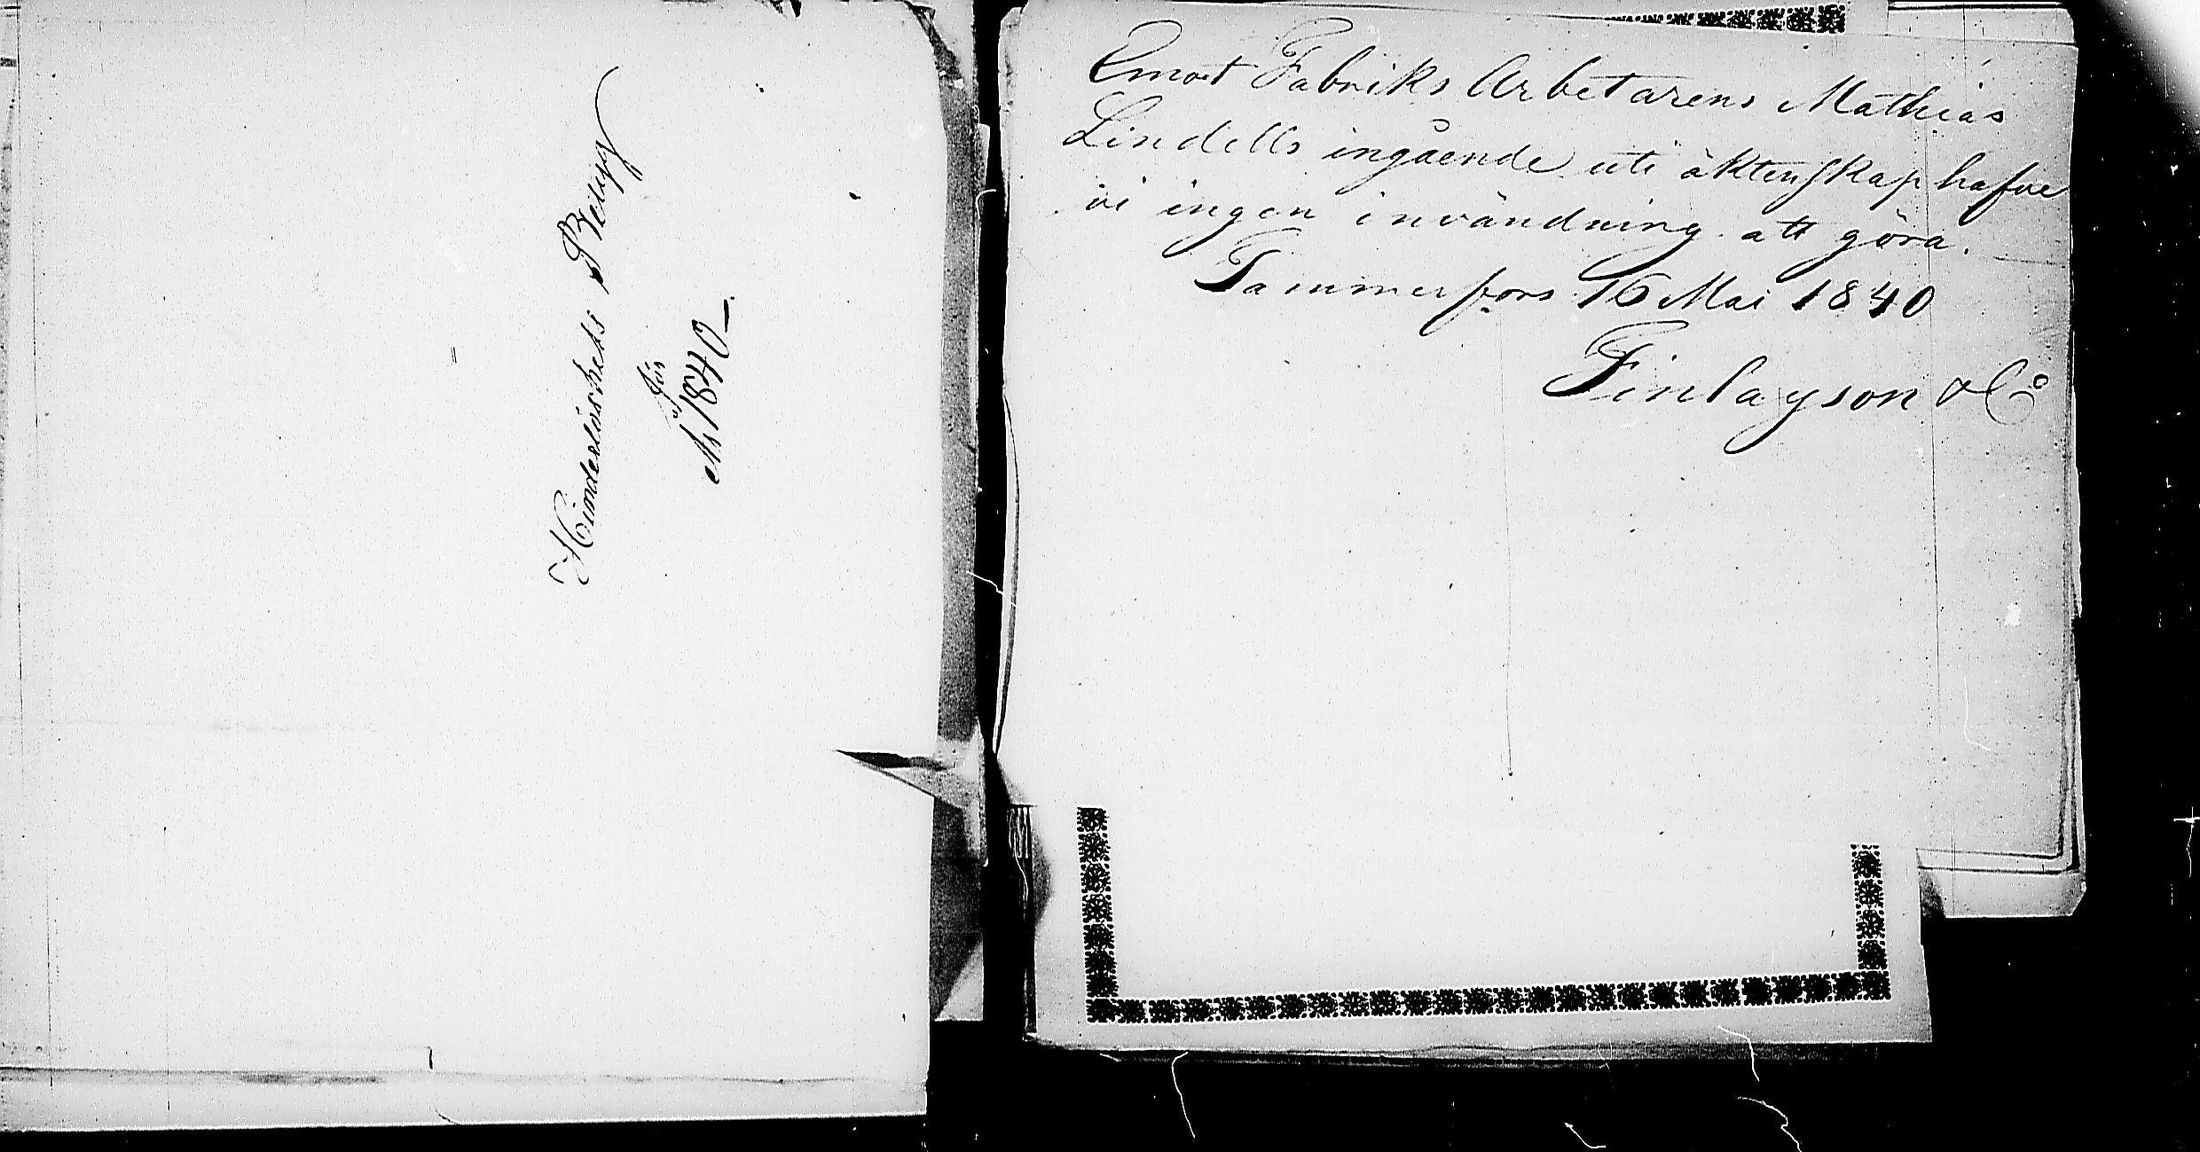 Hinderlöshets Bewis
för
År 1840
Emot Fabriks Arbetarens Mathias
Lindells ingående uti äktenskap hafve
vi ingen invändning att göra.
Tammerfors 16 Mai 1840
Finlayson & Co